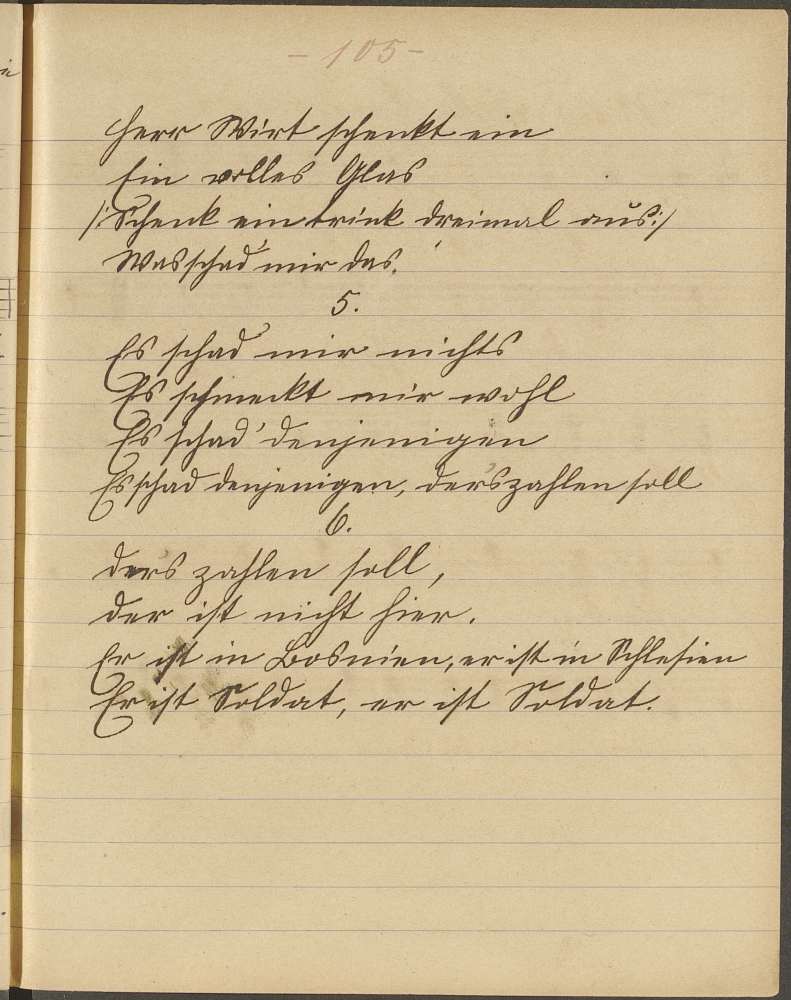 - 105 -
Herr Wirt schenkt ein
Ein volles Glas
/:Schenk ein trink dreimal aus:/
Was schad' mir das.
5.
Es schad' mir nichts
Es schmeckt mir wohl
Es schad' denjenigen
Es schad denjenigen, ders zahlen soll
6.
ders zahlen soll,
der ist nicht hier.
Er ist in Bosnien, er ist in Schlesien
Er ist Soldat, er ist Soldat.